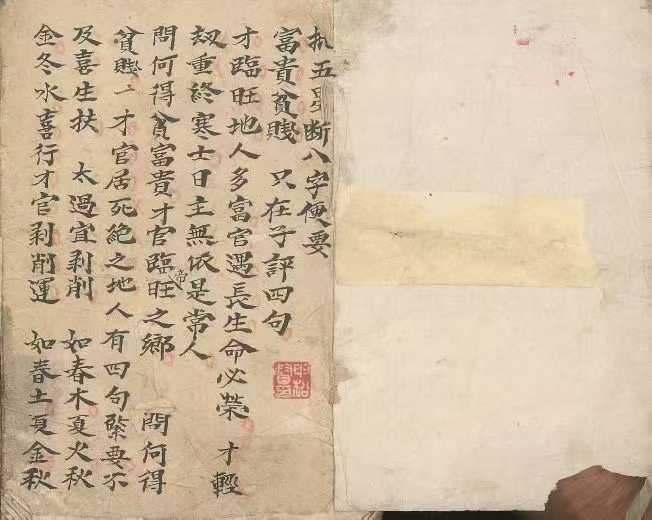 五星断八字便要
富貴貧賤　只在子評四句
才臨旺地人多富官遇長生命必榮　才輕
刼重終寒士日主無依是常人
問何得貧富貴才官臨帝旺之鄉　問何得
貧賤二才官居死絶之地人有四句緊要不
及喜生扶　太過宜剥削　如春木夏火秋
金冬水喜行才官剥削運　如春土夏金秋